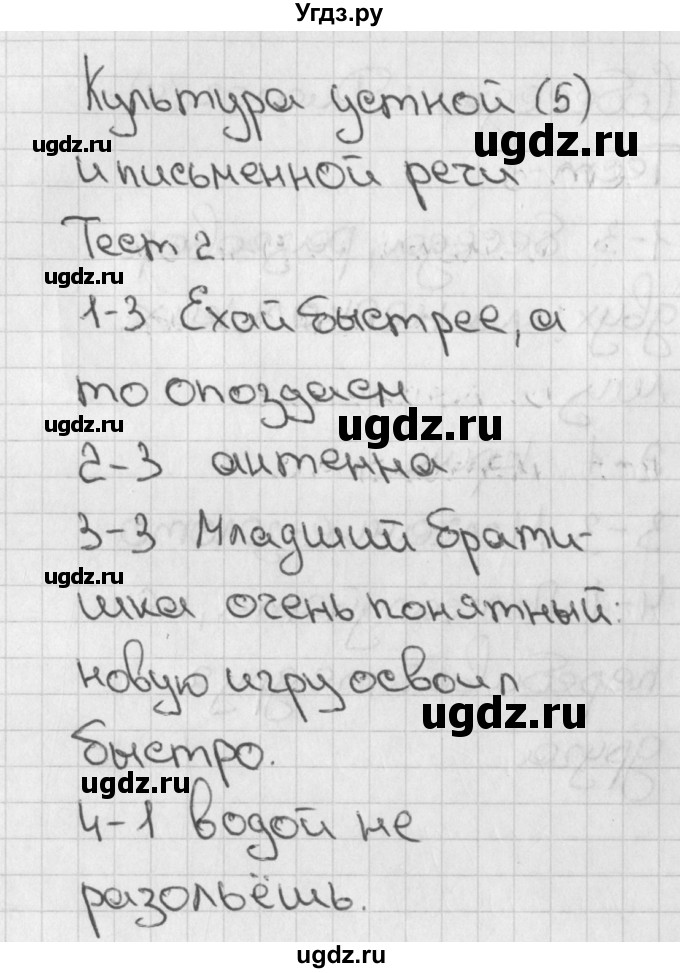 Угдз.ру
Культура устной (5)
ugdz.ru
ugdz.ru
и письменной речи
Тест 2
ugdz.ru
1-3 Ехай быстрее, а
то опоздаем
ugdz.ru
ugdz.ru
2-3 антенна
3-3 Младший брати-
ugdz.ru
шка очень понятный:
новую игру освоил
ugdz.ru
быстро.
ugdz.ru
4-1 водой не
разольёшь.
ugdz.ru